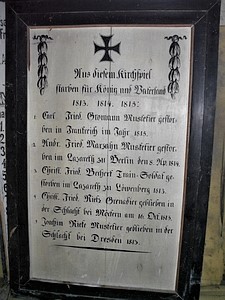 Aus diesem Kirchspiel
starben für König und Vaterland
1813. 1814. 1815:
1. Carl Fried. Gromann Musketier gestor-
ben in Frankreich im Jahr 1815.
2. Andr. Fried. Marzahn Musketier gestor-
ben im Lazareth zu Berlin den 8. Ap. 1814.
3. Christ. Fried. Bechert Train-Soldat ge-
storben im Lazareth zu Löwenberg 1813.
4. Christ. Fried. Rieß Grenadier geblieben in
der Schlacht bei Möckern am 16. Oct. 1813.
5. Joachim Rieß Musketier geblieben in der
Schlacht bei Dresden 1813.